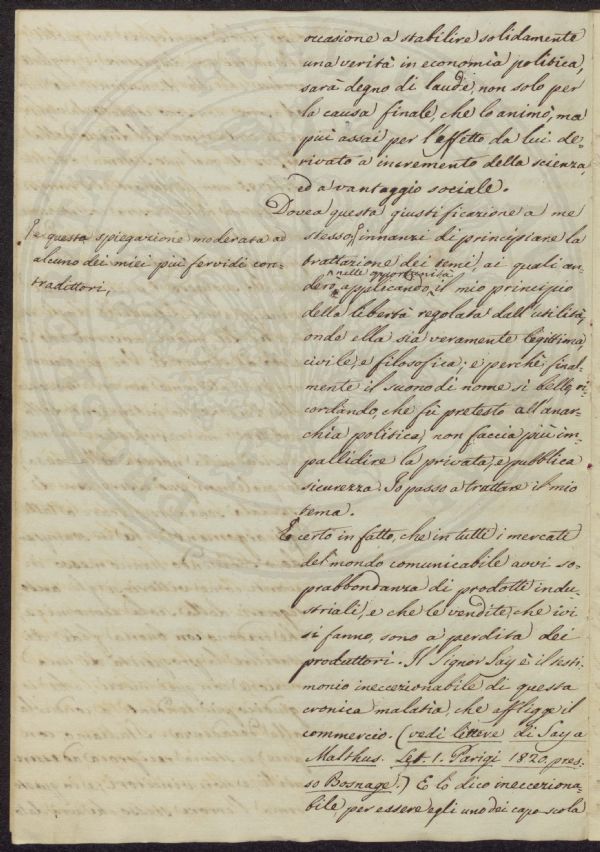 occasione a stabilire solidamente
una verità in economia politica,
sarà degno di laude, non solo per
la causa finale, che lo animò, ma
più assai per l'effetto da lui de-
rivato a incremento della scienza,
ed a vantaggio sociale.
Dovea questa giustificazione a me
stesso, innanzi di principiare la
e questa spiegazione moderata ad
alcuno dei miei più fervidi con-
tradittori,
trattazione dei temi, ai quali an-
nelle opportunità
derò applicando il mio principio
della libertà regolata dall'utilità,
onde ella sia veramente legittima
civile, e filosofica; e perchè final-
mente il suono di nome sì bello, ri-
cordando, che fù pretesto all'anar-
chia politica, non faccia più im-
pallidire la privata, e pubblica
sicurezza. Io passo a trattare il mio
tema.
È certo in fatto, che in tutti i mercati
del mondo comunicabile avvi so-
prabbondanza di prodotti indu-
striali, e che le vendite, che ivi
si fanno, sono a perdita dei
produttori. Il Signor Say è il testi-
monio ineccezionabile di questa
cronica malatia, che affligge il
commercio. (vedi lettere di Say a
Malthus. Let. 1. Parigi 1820. pres-
so Bosnage.) E lo dico ineccezziona-
bile, per essere egli uno dei capo-scola